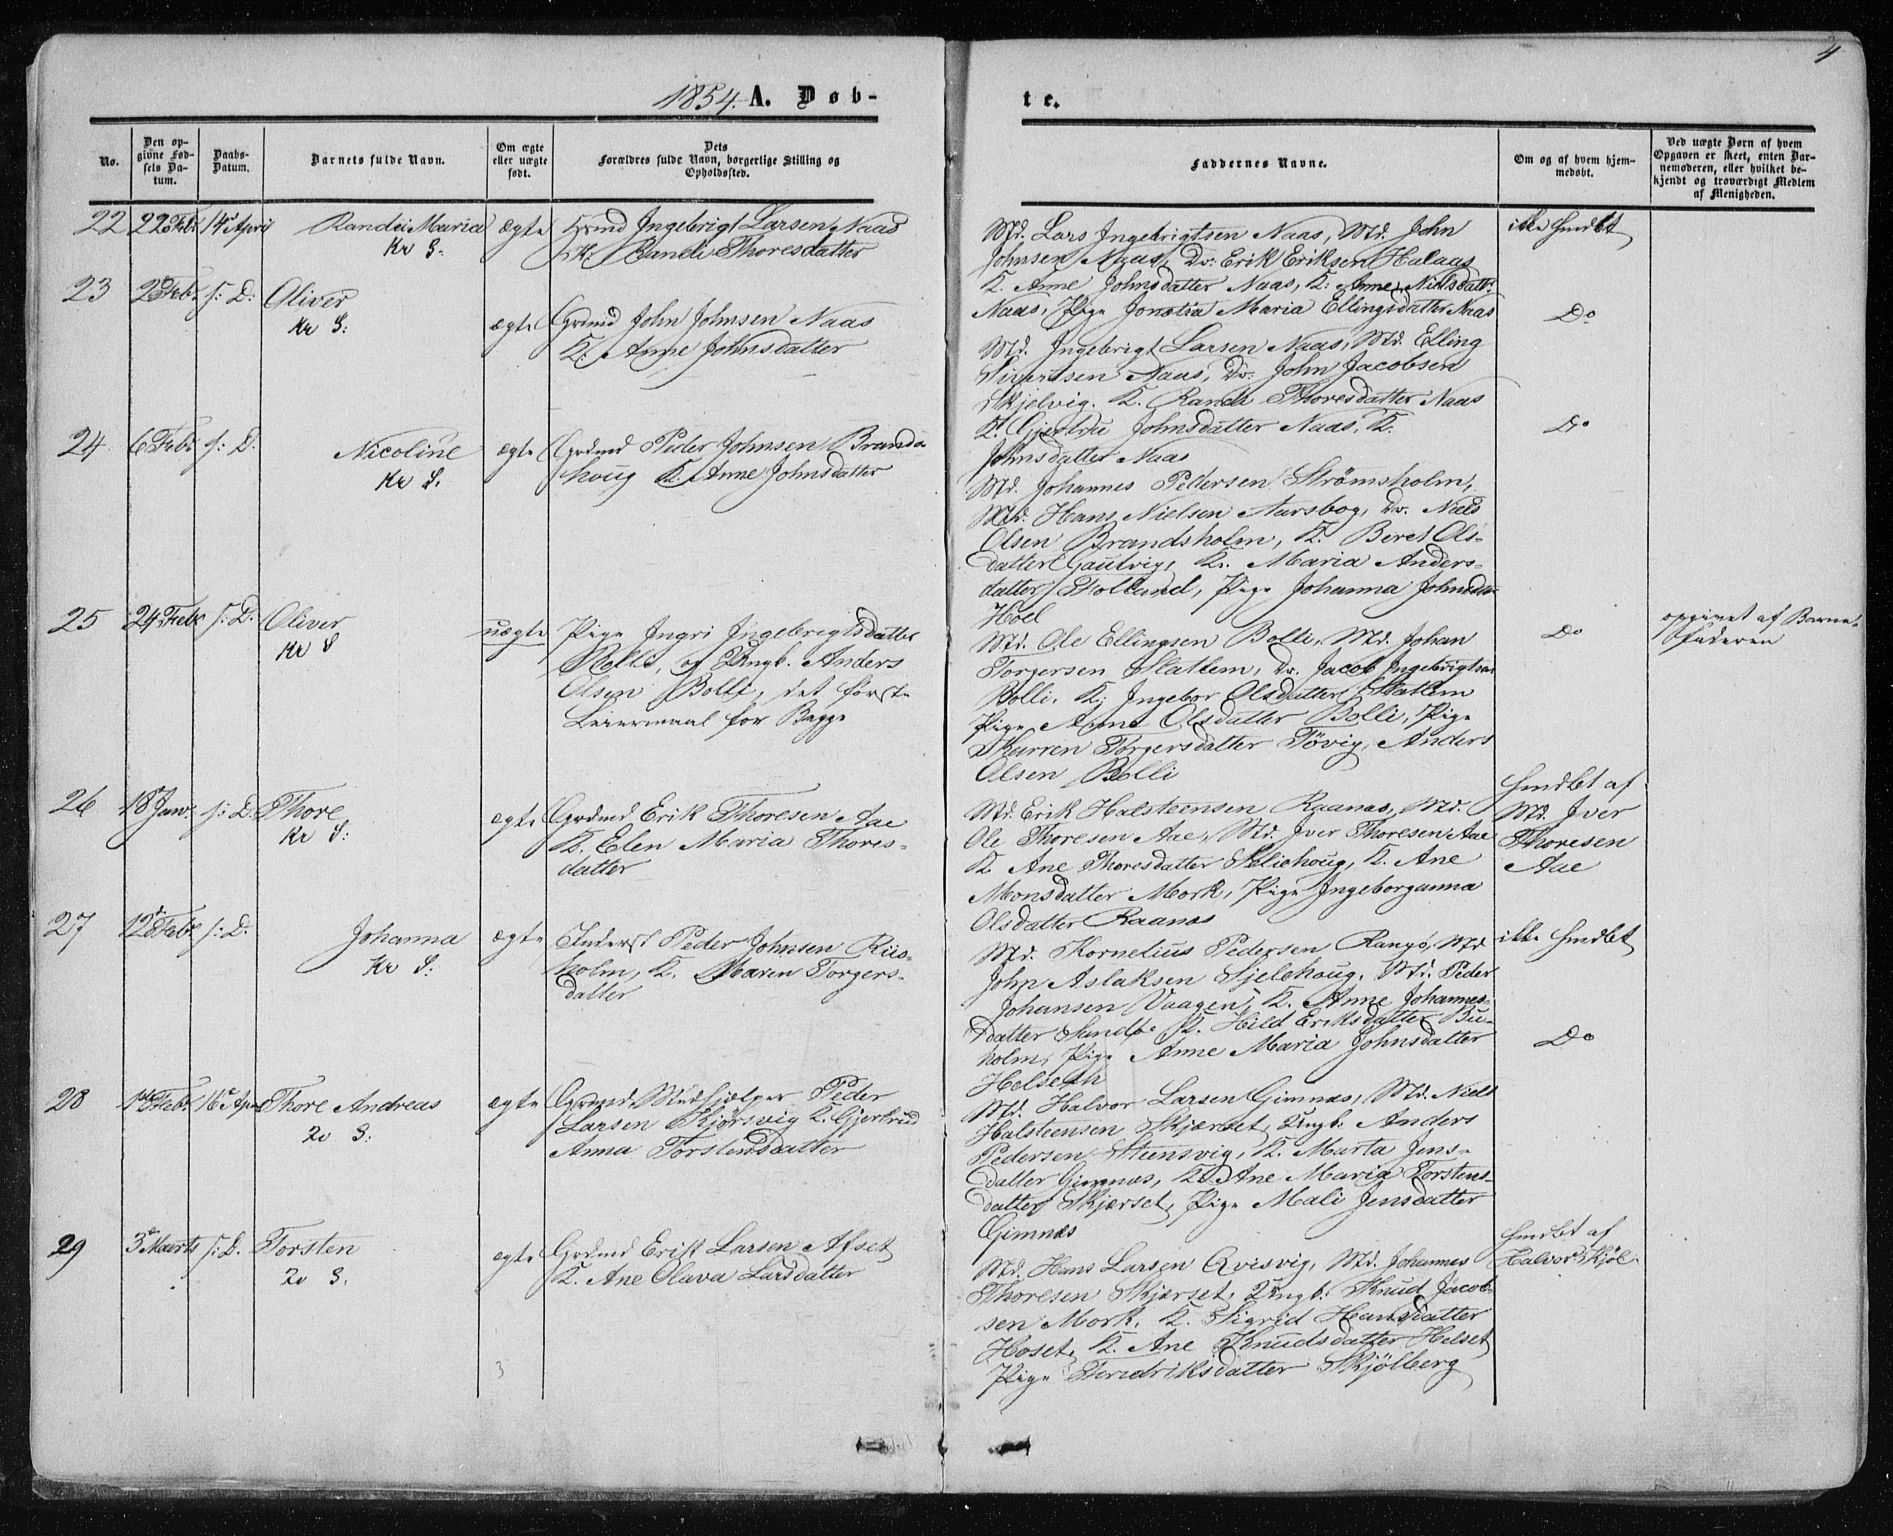 4
1854. A. Døb-
te.
No.
Den op-
givne Fød-
sels Da-
tum.
Daabs-
Datum.
Barnets fulde Navn.
Om ægte
eller uægte
født.
Dets
Forældres fulde Navn, borgerlige Stilling og
Opholdssted.
Faddernes Navne.
Om og af hvem hjem-
medøbt.
Ved uægte Børn af hvem
Opgaven er skeet, enten Bar-
nemoderen, eller hvilket be-
kjendt og troværdigt Medlem
af Menigheden.
22 22 Febr 14 April Randi Maria ægte Grmd Ingebrigt Larsen Naas
Kr S. K: Randi Thoresdatter
Md. Lars Ingebrigtsen Naas, Md. John
Johnsen Naas, Dr: Erik Eriksen Halaas
K. Anne Johnsdatter Naas, K: Anne Nielsdatt:
Naas, Pige Jonetta Maria Ellingsdatter Naas
ikke hmdbt
23 2 Febr s: D: Oliver
Kr S:
ægte Grmd John Johnsen Naas
K: Anne Johnsdatter
Md. Ingebrigt Larsen Naas, Md. Elling
Sivertsen Naas, Dr: John Jacobsen
Skjelvig. K. Randi Thoresdatter Naas
K: Gjertrue Johnsdatter Naas, K.
Johnsdatter Naas
Do
24 6 Febr s: D. Nicoline
Kr S.
ægte Grdmd Peder Johnsen Brands
houg K. Anne Johnsdatter
Md. Johannes Pedersen Strømsholm,
Md. Hans Nielsen Aarsbog, Dr. Niels
Olsen Brandsholm, K. Beret Ols-
datter Gautvig, K. Maria Anders-
datter Holland, Pige Johanna Johnsdtr
Hoel
Do
25 24 Febr s: D. Oliver
Kr S
uægte Pige Ingri Ingebrigtsdatter
Bolli, af Ungk. Anders
Olsen Bolli, det første
Leiermaal for Begge
Md. Ole Ellingsen Bolli, Md. Johan
Torgersen Slatlem, Dr. Jacob Ingebrigtsen
Bolli, K: Ingebor Olsdatter Slatlem
Pige Anne Olsdatter Bolli, Pige
Karren Torgersdatter Tøvig, Anders
Olsen Bolli
Do
opgivet af Barne-
faderen
26 18 Janr. s: D. Thore
Kr S:
ægte Grdmd Erik Thoresen Aae
K. Elen Maria Thores-
datter
Md. Erik Halsteensen Raanæs, Md.
Ole Thoresen Aae, Md. Iver Thoresen Aae
K. Ane Thoresdatter Seliehoug, K. Ane
Monsdatter Mork, Pige Ingeborganna
Olsdatter Raanæs
hmdbt af
Md. Iver
Thoresen
Aae
27 12 Febr s: D. Johanna
Kr S:
ægte Inderst Peder Johnsen Riis-
holm, K. Maren Torgers-
datter
Md. Kornelius Pedersen Rangø, Md
John Aslaksen Sjelehoug, Md. Peder
Johansen Vaagen, K. Anne Johannes-
datter Sandø K. Hild Eriksdatter Bu-
holm, Pige Anne Maria Johnsdatter
Helseth
ikke hmdbt
Do
28 14 Febr 16 Apr Thore Andreas
2v S:
ægte Grmd Medhjælper Peder
Larsen Skjørsvig K. Gjertrud
Anna Torstensdatter
Md. Halvor Larsen Gimnæs, Md. Niels
Halsteensen Skjærset, Ungk. Anders
Pedersen Steensvig, K. Marta Jens-
datter Gimnæs, K. Ane Maria Torstens-
datter Skjærset, Pige Mali Jensdatter
Gimnæs
29 3 Marts s: D. Torsten
2v S.
ægte Grdmd Erik Larsen Afset
K. Ane Olava Larsdatter
Md. Hans Larsen Qvisvig, Md. Johannes
Thoresen Skjærset, Ungk: Knud Jacob-
sen Mork, K. Sigrid Hansdatter
Hoset, K. Ane Knudsdatter Helset
Pige Fredriksdatter Skjølberg
hmdbt af
Halvor Skjøl-
3